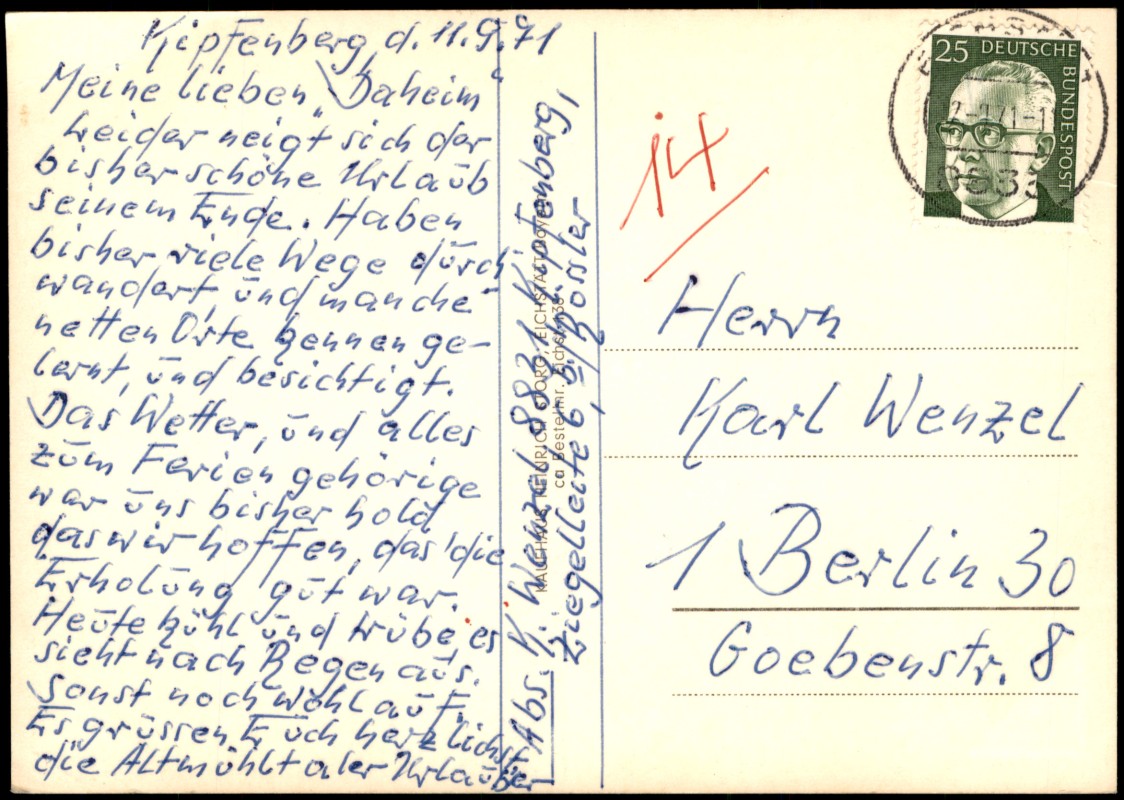 Kipfenberg, d. 11.9.71
Meine lieben "Daheim"
Leider neigt sich der
bisher schöne Urlaub
seinem Ende. Haben
bisher viele Wege durch
wandert, und manche
netten Orte kennen ge-
lernt, und besichtigt.
Das Wetter, und alles
zum Ferien gehörige
war uns bisher hold
das wir hoffen, das die
Erholung gut war.
Heute kühl und trübe, es
sieht nach Regen aus.
Sonst noch wohlauf.
Es grüssen Euch herzlichst
die Altmühltaler Urlauber
Abs. K. Wenzel. 8831 Kipfenberg,
Ziegelleite 6, b/Bössler
KAUFHAUS HEINRICH GEORG, EICHSTÄTT
ca Bestellnr.
25 DEUTSCHE
BUNDESPOST
Herrn
Karl Wenzel
1 Berlin 30
Goebenstr. 8